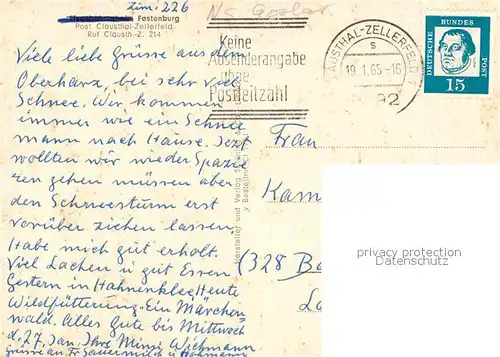 Zim. 226
Festenburg
Post Clausthal-Zellerfeld
Ruf Clausth.-Z. 214
Viele liebe Grüsse aus dem
Oberharz, bei sehr viel
Schnee. Wir kommen
immer wie ein Schnee
mann nach Hause. Jetzt
wollten wir wieder Spazie
ren gehen müssen aber
den Schneesturm erst
vorüber ziehen lassen
Habe mich gut erholt.
Viel Lachen u gut Essen
Gestern in Hahnenklee, Heute
Wildfütterung. Ein Märchen
wald. Alles Gute bis Mittwoch
d. 27. Jan. Ihre Mimi Wichmann
Grüße an Fr. Sauermilch u
Keine
Absenderangabe
ohne
Postleitzahl
CLAUSTHAL-ZELLERFELD 1
s
19.1.65-16
392
DEUTSCHE BUNDES POST
15
Hersteller und Verlag
Frau
Kam
(328 Ba
privacy protection